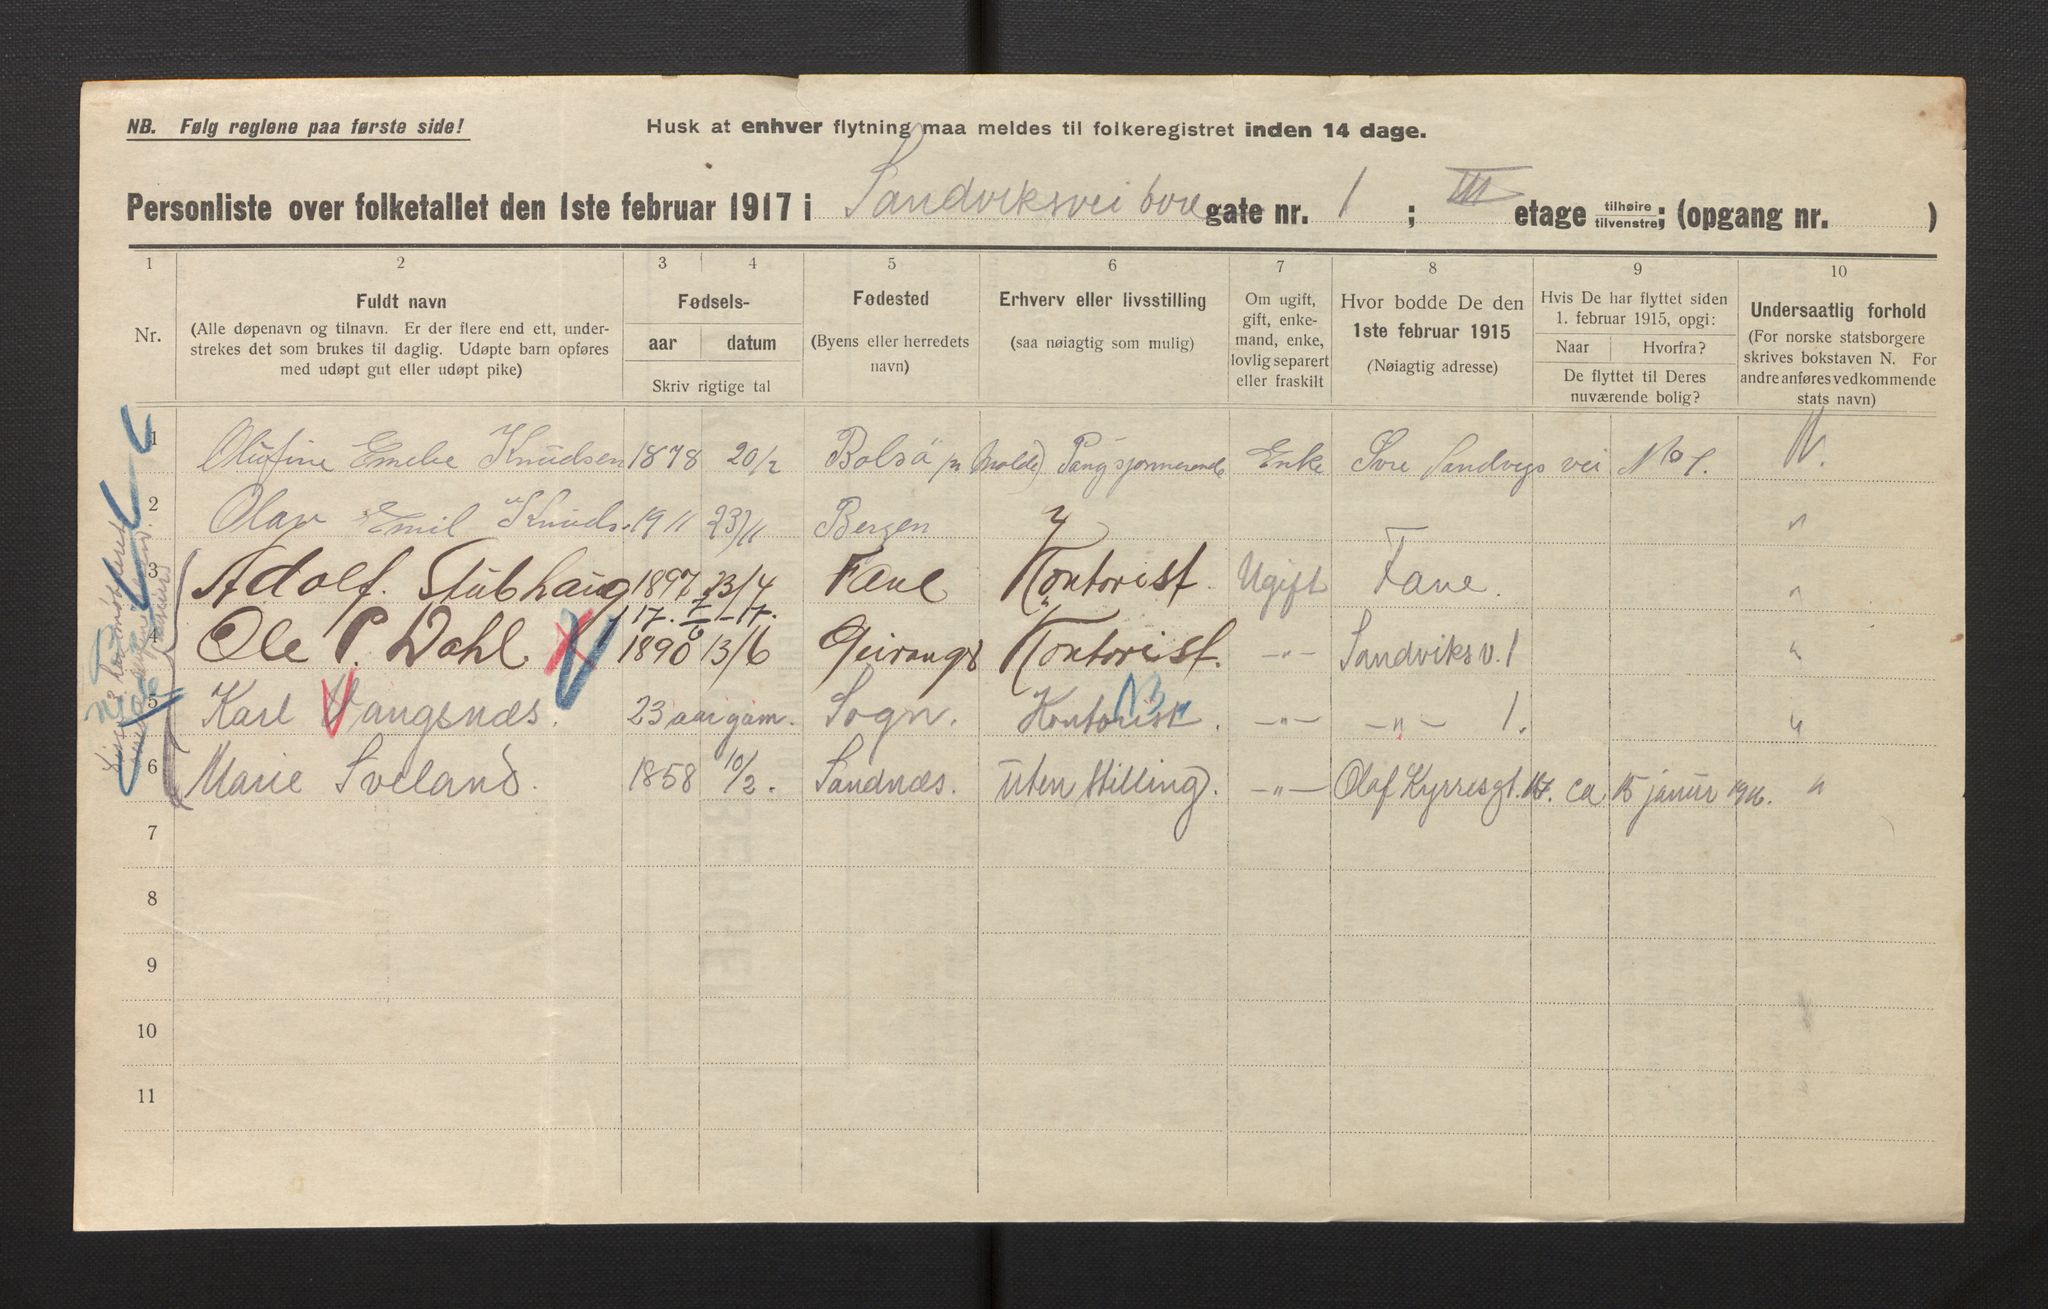 NB. Følg reglene paa første side!
Husk at enhver flytning maa meldes til folkeregistret inden 14 dage.
Personliste over folketallet den 1ste februar 1917 i Sandviksvei övre gate nr. 1 ; III etage tilhøire tilvenstre; (opgang nr. )
1 2 3 4 5 6 7 8 9 10
Nr.
Fuldt navn
(Alle døpenavn og tilnavn. Er der flere end ett, under-
strekes det som brukes til daglig. Udøpte barn opføres
med udøpt gut eller udøpt pike)
Fødsels-
aar datum
Skriv rigtige tal
Fødested
(Byens eller herredets
navn)
Erhverv eller livsstilling
(saa nøiagtig som mulig)
Om ugift,
gift, enke-
mand, enke,
lovlig separert
eller fraskilt
Hvor bodde De den
1ste februar 1915
(Nøiagtig adresse)
Hvis De har flyttet siden
1. februar 1915, opgi:
Naar Hvorfra?
De flyttet til Deres
nuværende bolig?
Undersaatlig forhold
(For norske statsborgere
skrives bokstaven N. For
andre anføres vedkommende
stats navn)
1 Olufine Knudsen 1878 20/2 Bolsö pr Molde) Enke Övre Sandvigs vei No 1. N.
2 Olav Emil Knuds. 1911 23/11 Bergen "
3 Adolf. Stubhaug 1897 23/4 Fane Kontorist. Ugift Fane. "
17. - 17.
4 Ole P. Dahl 1890 13/6 Geiranger Kontorist. -"- Sandviksv. 1 "
5 Karl Vangsnæs. 23 aar gam. Sogn. Kontorist. -"- -"- 1. "
6 Marie Sveland. 1858 10/2. Sandnæs. uten stilling. -"- Olaf Kyrresgt. 17. ca 15 januar 1916. "
7
8
9
10
11